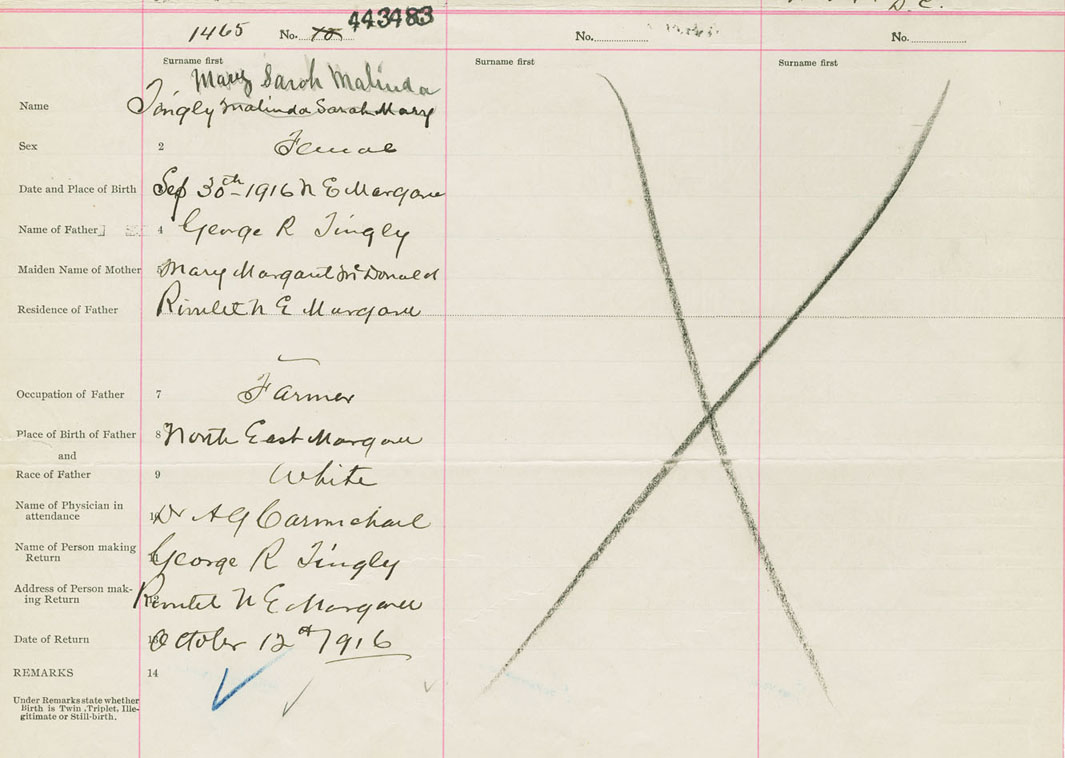 D.C.
1465 No. 443483 No. No.
Surname first Surname first Surname first
Mary Sarah Malinda
Name Tingly Malinda Sarah Mary
Sex 2 Female
Date and Place of Birth Sep 30th 1916 N E Margaree
Name of Father 4 George R Tingly
Maiden Name of Mother 5 Mary Margaret McDonald
Residence of Father N E Margaree
Occupation of Father 7 Farmer
Place of Birth of Father 8 North East Margaree
and
Race of Father 9 White
Name of Physician in
attendance 10 Dr A G Carmichael
Name of Person making
Return George R Tingly
Address of Person mak-
ing Return 12 N E Margaree
Date of Return 13 October 12th 1916
REMARKS 14
Under Remarks state whether
Birth is Twin, Triplet, Ille-
gitimate or Still-birth.